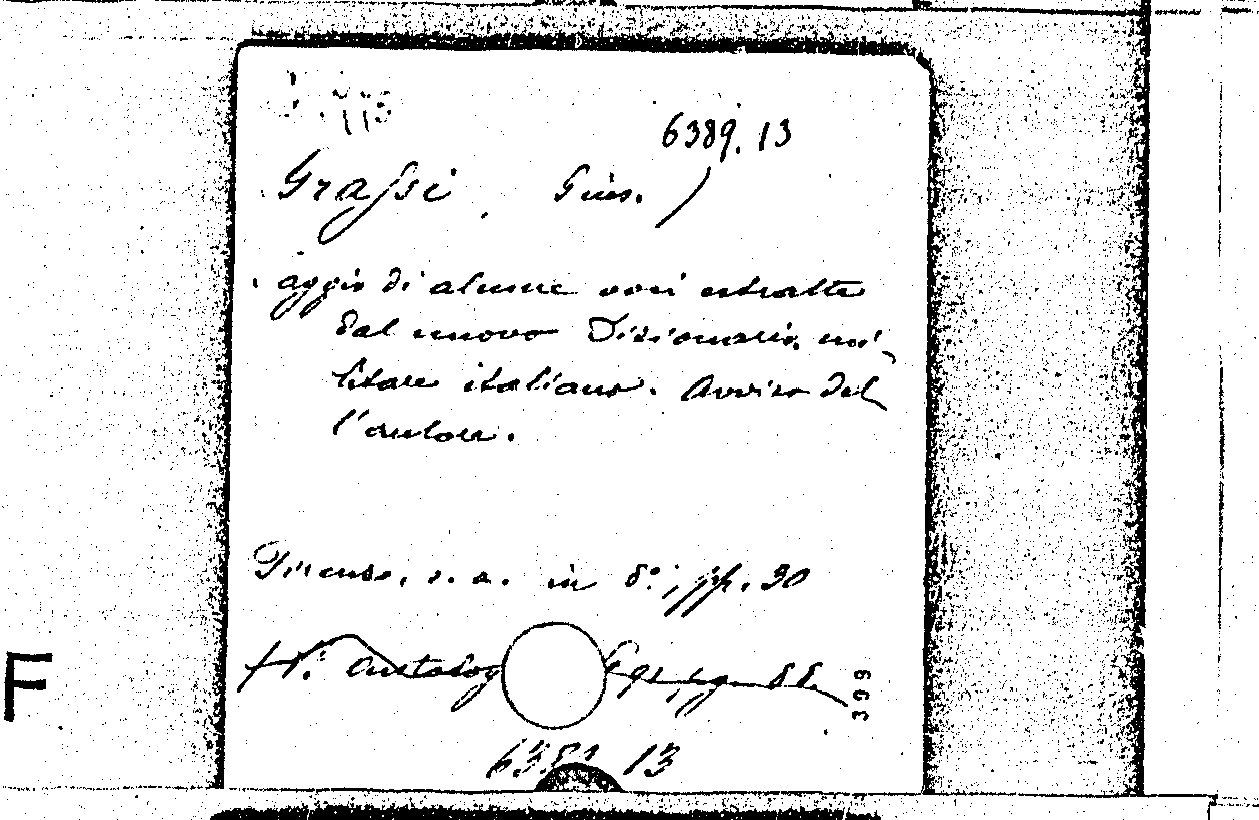 6389.13
Grassi, Gius.)
aggio di alcune voci estratte
dal nuovo Dizionario mi-
litare italiano. Avviso del-
l'autore.
Firenze, s. a. in 8°, pp. 20
Antolog
399
F
6389 13